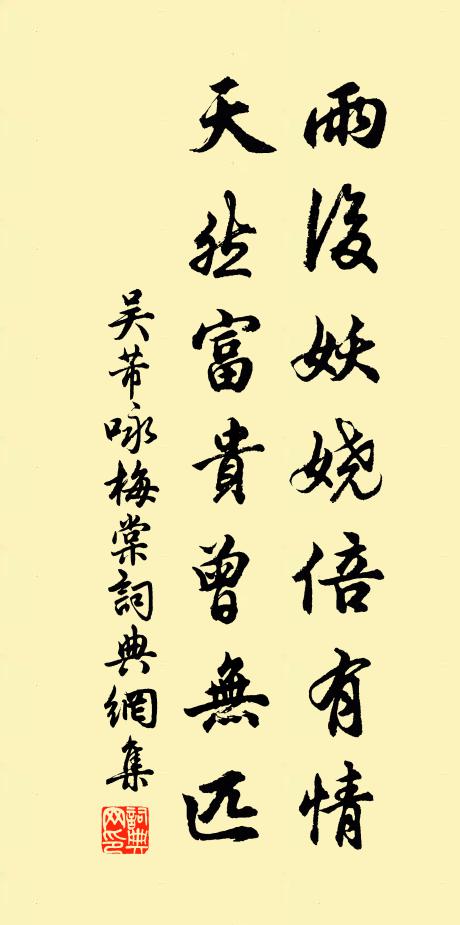 雨後妖娆倍有情
天然富貴曾無匹
吴芾咏梅棠詞典網集
詞典网印